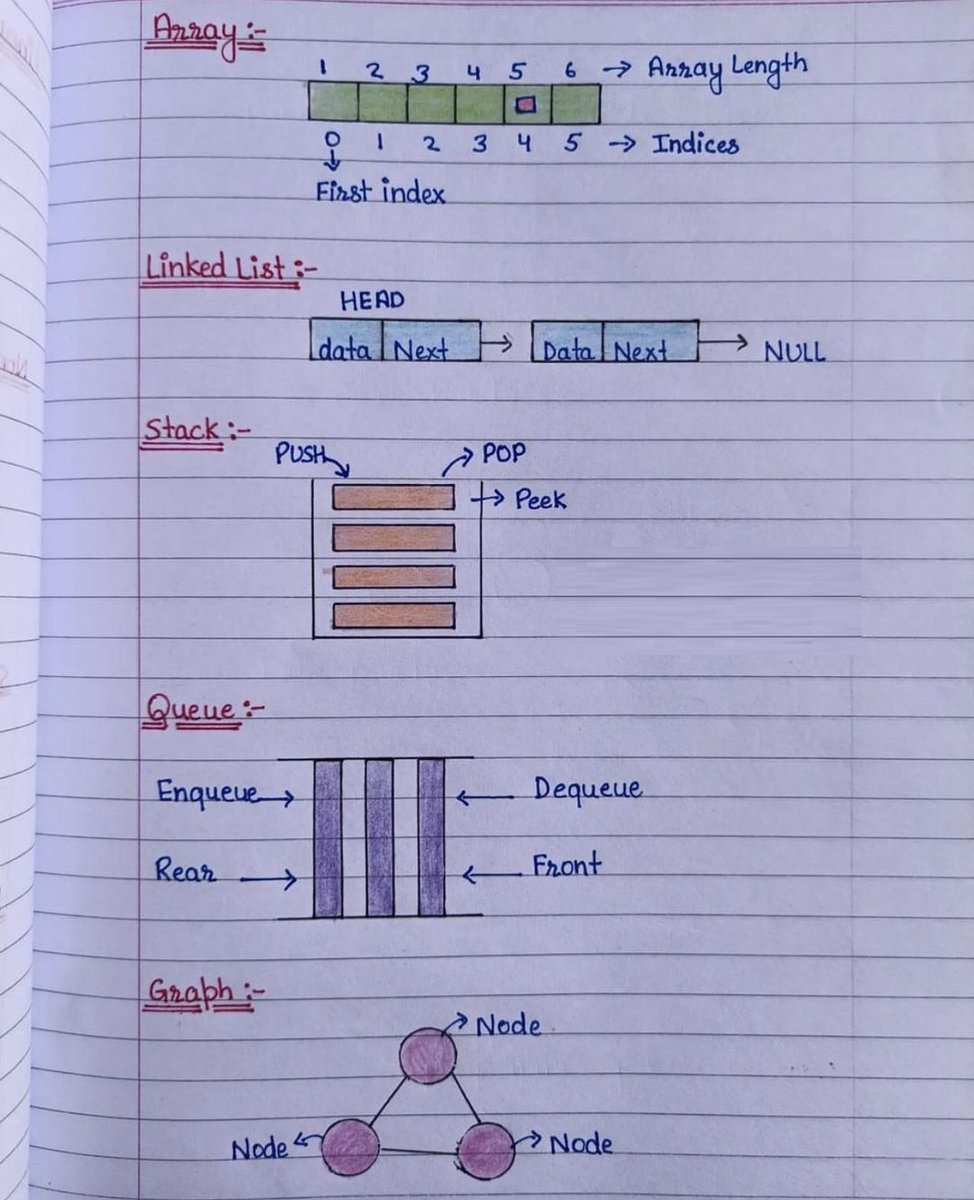 Array :-
1 2 3 4 5 6 → Array Length
0 1 2 3 4 5 → Indices
First index
Linked List :-
HEAD
data Next → Data Next → NULL
Stack :-
PUSH POP
→ Peek
Queue :-
Enqueue → ← Dequeue
Rear → ← Front
Graph :-
Node
Node Node